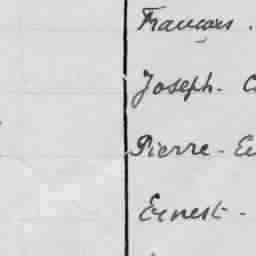 François.
Joseph-
Pierre-
Ernest-